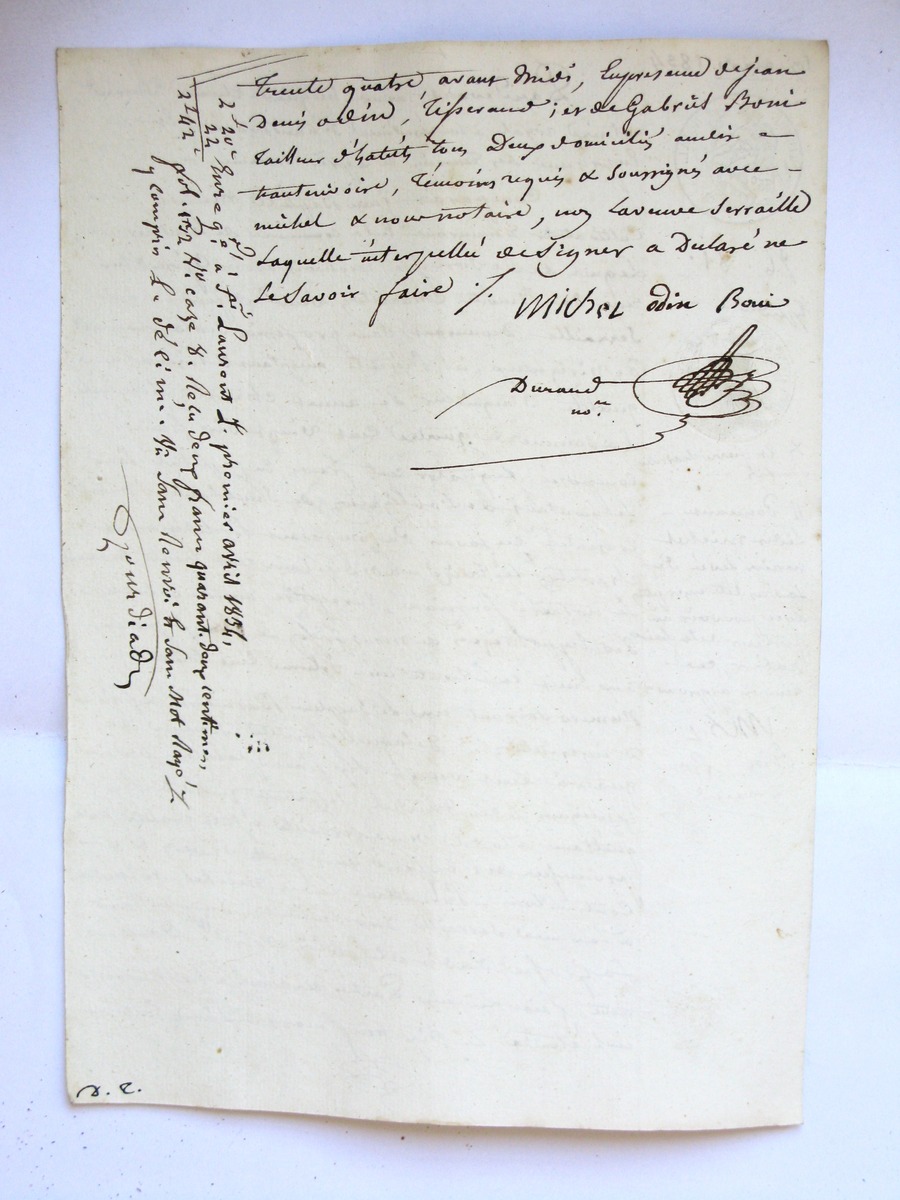 trente quatre avant midi, En presence de jean
Denis odin, Tisserand; et de Gabriël Boni
tailleur d'habits tous Deux domiciliés audit
hauterivoire, Témoins requis & soussignés avec
michel & nous notaire, non Laveuve Serraille
Laquelle interpellée de Signer a Déclaré ne
Le Savoir faire ./.
Michel odin Boni
Durand
no.re
2f 20c
22
2f 42c
Enreg.é à St Laurent Le premier avril 1834,
fol. 152 Vo case 8. Reçu deux francs quarante deux centimes,
y compris Le décime. Sans Renvoi ni Sans Mot Rayé